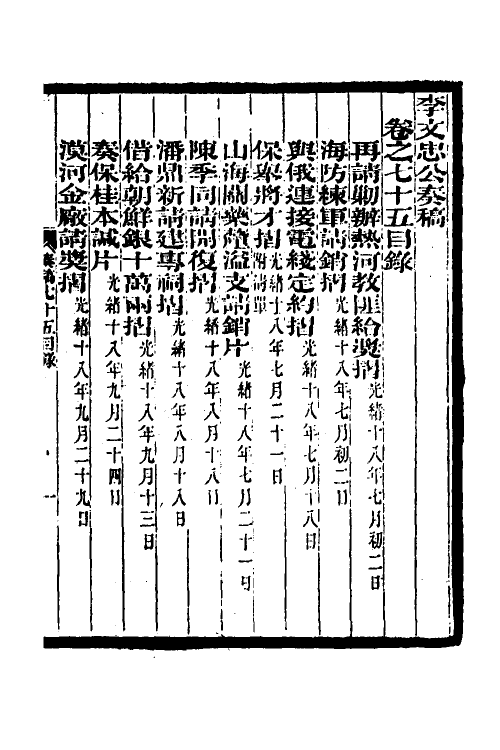 李文忠公奏稿
卷之七十五目錄
再請勦辦熱河教匪給獎摺光緒十八年七月初二日
海防練軍請銷摺光緒十八年七月初二日
與俄連接電綫定約摺光緒十八年七月十八日
保舉將才摺附清單光緒十八年七月二十一日
山海關藥費溢支請銷片光緒十八年七月二十一日
陳季同請開復摺光緒十八年八月十八日
潘鼎新請建專祠摺光緒十八年八月十八日
借給朝鮮銀十萬兩摺光緒十八年九月十三日
奏保桂本誠片光緒十八年九月二十四日
漠河金廠請獎摺光緒十八年九月二十九日
奏稿七十五目錄
一